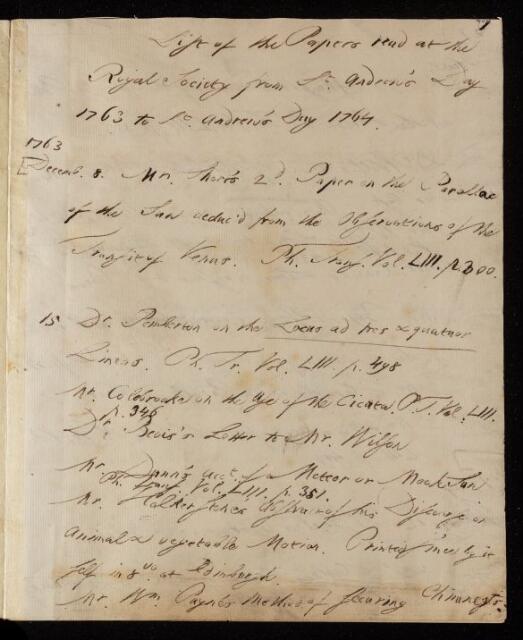 List of the Papers read at the
Royal Society from St. Andrew's Day
1763 to St. Andrew's Day 1764.
1763
Decemb. 8. Mr. Short's 2d. Paper on the Parallax
of the Sun deduc'd from the Observations of the
Transit of Venus. Ph. Trans. Vol. LIII. p. 300.
15 Dr. Pemberton on the Locus ad tres & quatuor
Lineas. Ph. Tr. Vol. LIII. p. 498
Mr. Colebrooke on the Use of the Cicuta. P. T. Vol. LIII.
p. 346
Dr. Bevis's Letter to Mr. Wilson
Mr. Dunn's acct. of a Meteor or Mock Sun
Ph. Trans. Vol. LIII. p. 351.
Mr. of his Discourse on
Animal & vegetable Motion. Printed by it
self in 8vo. at Edinburgh.
Mr. Wm. Payne's Method of securing Chimneys